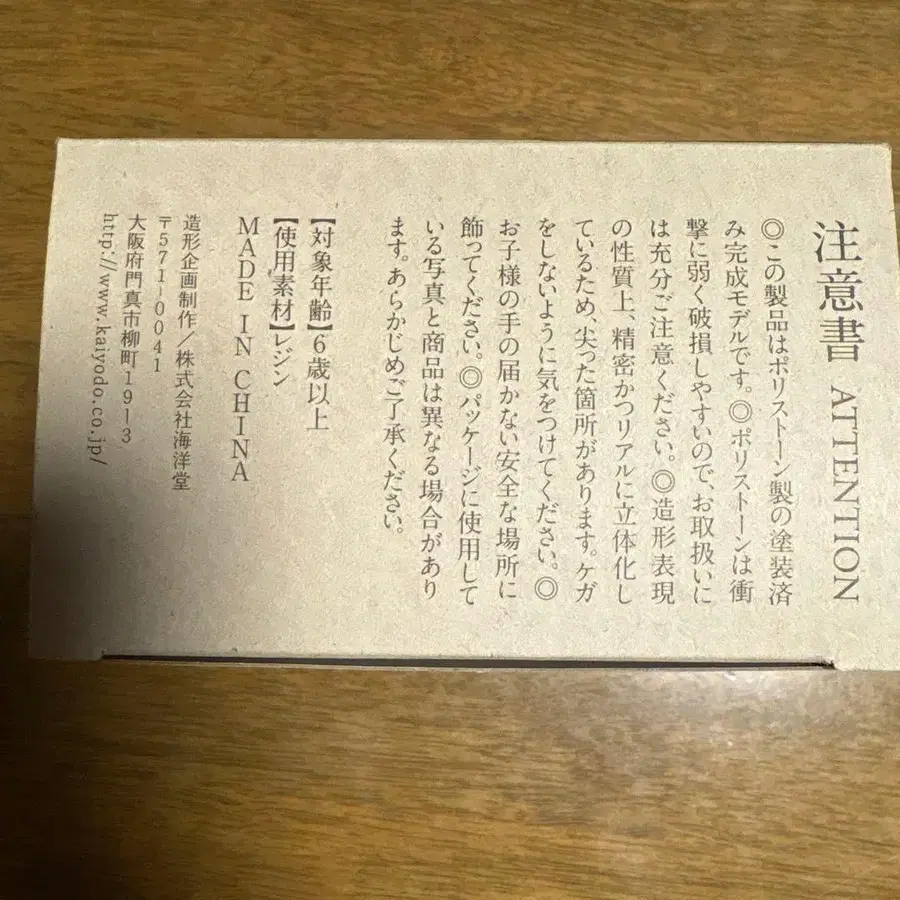 注意書 ATTENTION
◎この製品はポリストーン製の塗装済
み完成モデルです。◎ポリストーンは衝
撃に弱く破損しやすいので、お取扱いに
は充分ご注意ください。◎造形表現
の性質上、精密かつリアルに立体化し
ているため、尖った箇所があります。ケガ
をしないように気をつけてください。◎
お子様の手の届かない安全な場所に
飾ってください。◎パッケージに使用して
いる写真と商品は異なる場合があり
ます。あらかじめご了承ください。
【対象年齢】6歳以上
【使用素材】レジン
MADE IN CHINA
造形企画制作／株式会社海洋堂
〒571-0041
大阪府門真市柳町19-3
http://www.kaiyodo.co.jp/